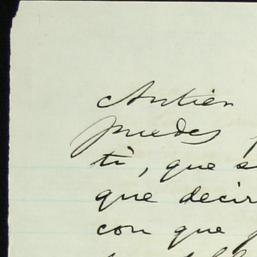 Antier
puedes
ti, que s
que decir
con que